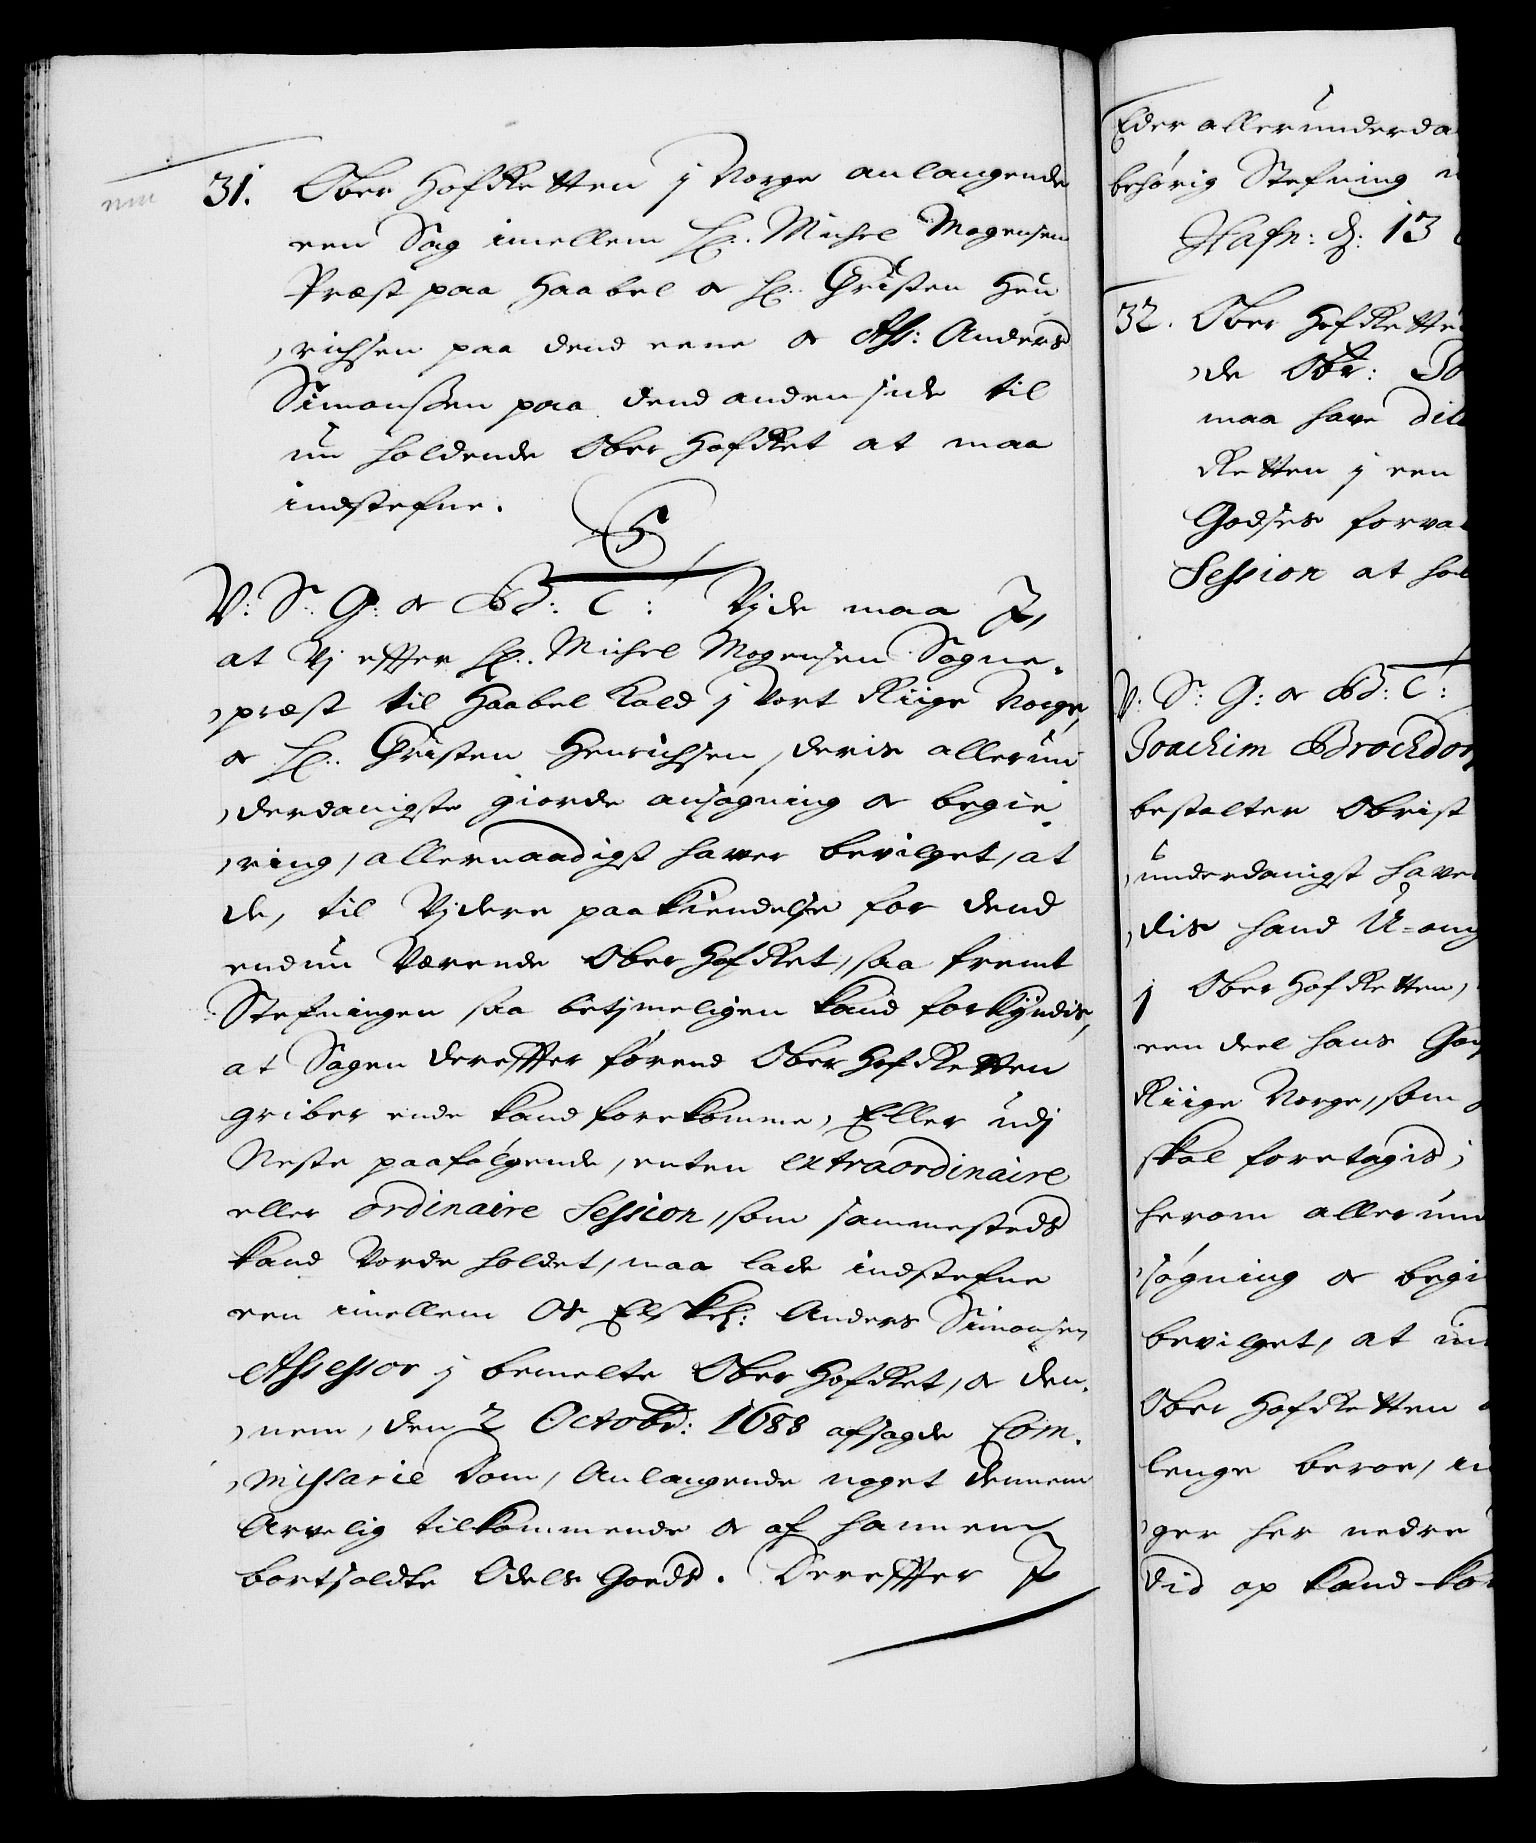 31. Ober Hof Retten j Norge anlangende
een Sag imellem Hr. Michel Mogensen
Præst paa Haabel og Hr. Christen Hen
richsen paa dend eene og Ass: Anders
Simonssen paa dend anden side til
nu holdende Ober HofRet at maa
indstefne.
V: Sr: G: og Bd: C: Vide maa I,
at Vj effter Hr. Michel Mogensen Sogne-
præst til Haabel Kald j Vort Riige Norge,
og Hr. Christen Henrichsen, deris allerun
derdanigste giorde ansøgning og begie-
ring, allernaadigst hafver bevilget, at
de, til Vjdere paakiendelse for dend
endnu Værende Ober HofRet, saa fremt
Stefningen saa betjmeligen kand forkyndis,
at Sagen dereffter førend Ober HofRetten
griber ende kand forekomme, Eller udj
Neste paafølgende, enten extraordinaire
eller ordinaire Session, som sammesteds
kand Vorde holdet, maa lade indstefne
een imellem Os Elskel: Anders Simonsen
Assessor j bemelte Ober HofRet, og den-
nem, den 2 Octobr: 1688 afsagde Com-
missarie Dom, Anlangende noget dennem
Arvelig tilkommende og af hannem
bortsoldte Odels Goeds. Dereffter I
Eder allerunderda
behørig Stefning
Hafn: d: 13
32. Ober HofRette
de Obr:
maa have
Retten j een
Godses forva
Session at hol
V: Sr: G: og Bd: C:
Joachim Brockdor
bestalter Obrist
underdanigst have
dis hand U-ang
j Ober HofRetten,
een deel hans
Riige Norge, som
skal foretagis,
herom allerun
søgning og begie
bevilget, at in
Ober HofRetten
lenge beroe, in
ger her nedre
Did op kand kom